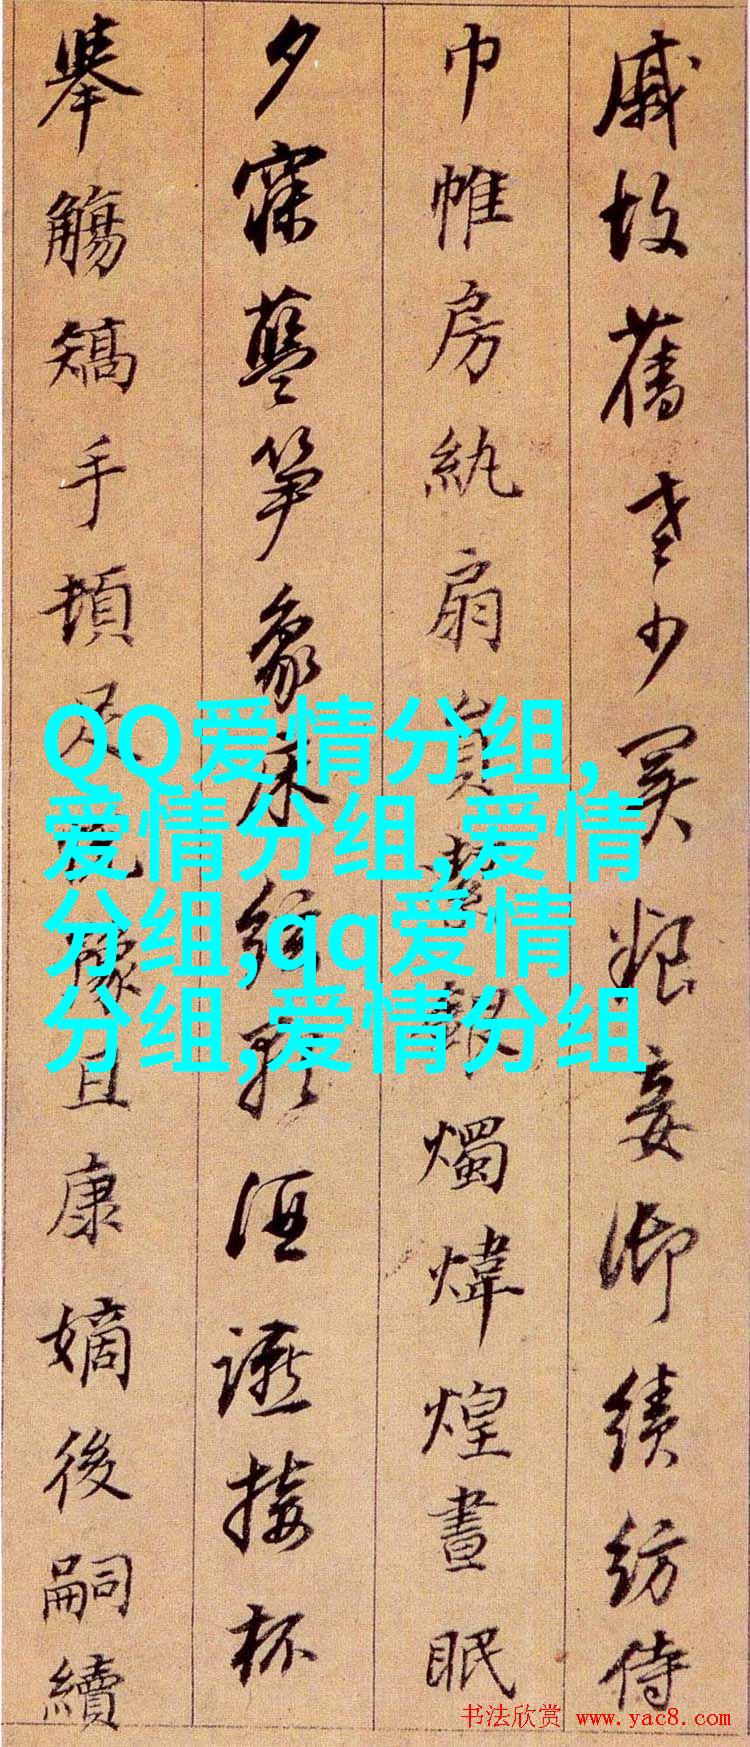 戚故舊老少異粮妾御績紡侍
巾帷房紈扇員絜銀燭煒煌晝眠
夕寐藍笋象床絃歌酒讌接杯
舉觴矯手頓足悅豫且康嫡後嗣續
QQ爱情分组,
爱情分组,爱情
分组,qq爱情
分组,爱情分组
书法欣赏 www.yac8.com